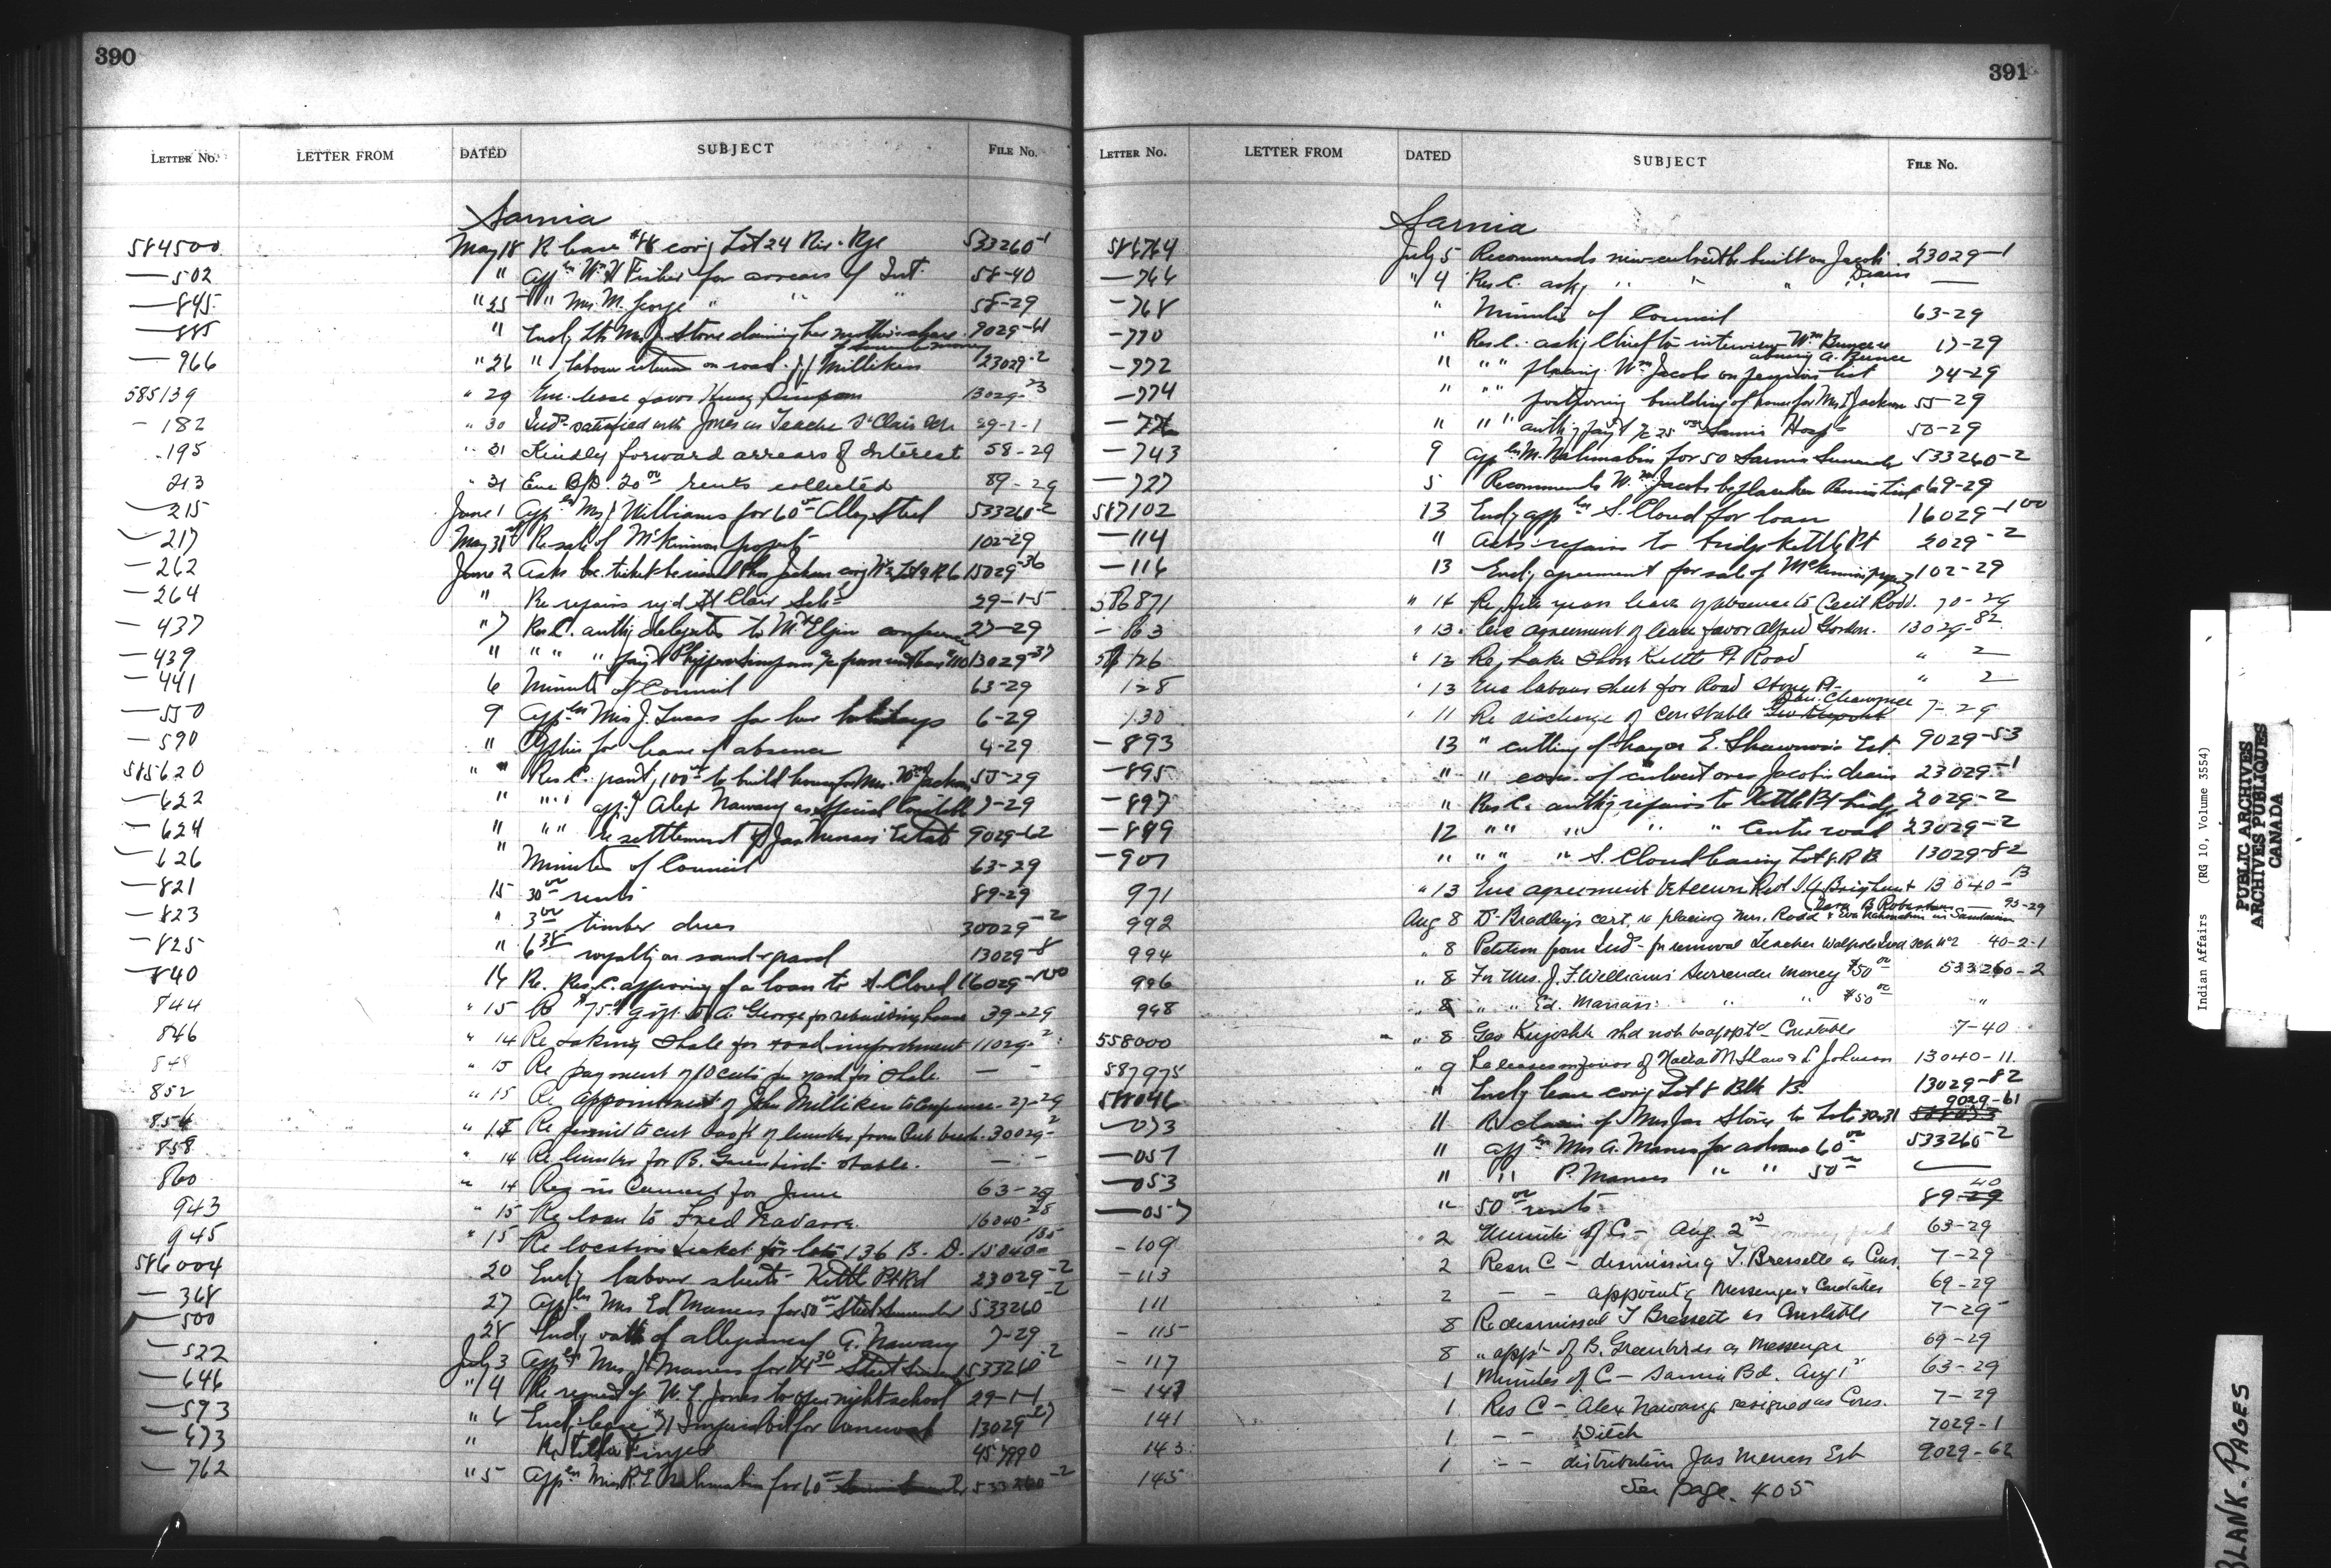 390
LETTER NO. LETTER FROM DATED SUBJECT FILE NO.
Sarnia
584500 May 18 R lease #88 covg Lot 24 Riv. Rge 533260-1
—502 " Appln Wm H Fisher for arrears of Int. 58-40
—845 " 25 " Mrs. M. George " " " 58-29
—885 " Encly Ltr Mrs J. Stone claiming her mothers share 9029-61
—966 " 26 " labour return on road. J. J Milliken 23029-2
585139 " 29 Enc. lease favor Henry Simpson 13029-23
—182 " 30 Inds satisfied with Jones as Teacher St Clair Sch 29-1-1
—195 " 31 Kindly forward arrears of Interest 58-29
213 " 31 Enc B/D. 20.00 rents collected 89-29
—215 June 1 Appln Mrs J Williams for 60.00 Alloy Steel 533260-2
—217 May 31st Re sale of McKinnon property 102-29
—262 June 2 Asks loc. ticket be issued Jackson 15029-36
—264 " Re repairs reqd St Clair Schl 29-1-5
—437 " 7 Res. C. authg delegates to Mt Elgin conference 27-29
—439 " " " " payt Simpson 13029-37
—441 6 Minutes of Council 63-29
—550 9 Appln Miss J. Lucas for her holidays 6-29
—590 " Applies for leave of absence 4-29
585620 " " Res C. grantg 100.00 to build house for Mrs. Jackson 55-29
—622 " " " " app. of Alex Nawang as special Constable 7-29
—624 " " " re settlement of Jas Menass Estate 9029-62
—626 " Minutes of Council 63-29
—821 15 30.00 rents 89-29
—823 " 3.00 timber dues 30029-2
—825 " 6.38 royalty on sand & gravel 13029-8
—840 14 Re. Res. C. approving of a loan to S. Cloud 16029-100
844 " 15 Re $75.00 gift to A. George for rebuilding house 39-29
846 " 14 Re taking shale for road improvement 11029-2
848 " 15 Re payment of 10 cents per yard for shale. — —
852 " 15 Re appointment of John Milliken to Conference. 27-29
854 " 15 Re permit to cut of lumber from Cut bush. 30029-2
858 " 14 Re lumber for B. Greenbird stable. — —
860 " 14 Res in Council for June 63-29
943 " 15 Re loan to Fred Nadarre. 16040-28
945 " 15 Re location ticket for lots 136 B. D. 15040-135
586004 20 Encly labour sheets- Kettle Pt Rd 23029-2
—368 27 Appln Mrs Ed Maness for 50.00 Steel Surrender 533260-2
—500 28 Encly oath of allegiance of A. Nawang 7-29
—522 July 3 Appln Mrs J. Maness for 533260-2
—646 " 4 Re request of W. L. Jones to open night school 29-1-1
—593 " 6 Encl lease #1 Imperial Oil for renewal 13029-27
—673 " Re Finger 457990
—762 " 5 Appln Mrs R. E Nahmabin for 60.00 533260-2
391
LETTER NO. LETTER FROM DATED SUBJECT FILE NO.
Sarnia
586764 July 5 Recommends new culverts built on Jacobs Drain 23029-1
—766 " 4 Res C. askg " " " " —
—768 " Minutes of Council 63-29
—770 " Res C. askg Chief to interview Wm Bunce re abusing A. Bunce 17-29
—772 " " " placing Wm Jacobs on pension list 74-29
—774 " " " postponing building of house for Mrs J Jackson 55-29
" " " authg payt a/c 25.00 Sarnia Hospl 50-29
—743 9 Appln M. Nahmabin for 50 Sarnia Surrender 533260-2
—727 5 Recommends Wm Jacobs be placed on Pension List 69-29
587102 13 Encly appln S. Cloud for loan 16029-100
—114 " Asks repairs to bridge Kettle Pt 2029-2
—116 13 Encly agreement for sale of McKinnon propy 102-29
586871 " 14 Re years leave of absence to Cecil Rodd. 70-29
—863 " 13. Enc agreement of lease favor Alfred Gordon. 13029-82
126 " 12 Re Lake Shore Kettle Pt Road " 2
128 " 13 Enc labour sheet for Road Stony Pt- " 2
130 " 11 Re discharge of constable 7-29
—893 13 " cutting of hay on E. Shawnoo's Est 9029-53
—895 " " cons. of culvert over Jacobs drain 23029-1
—897 " Res C. authg repairs to Kettle Pt bridge 2029-2
—899 12 " " " " " Centre road 23029-2
—901 " " " " S. Cloud leasing Lot 8. R B. 13029-82
971 " 13 Enc agreement between Rev 13040-13
992 Aug 8 Dr Bradley's cert, re placing Mrs. Rodd & Eva Nahmabin in Sanitarium 95-29
994 " 8 Petition from Inds - for removal teacher Walpole Isld Sch. No 2 40-2-1
996 " 8 For Mrs. J. F. Williams' Surrender money $50.00 533260-2
998 " 8 " " Ed. Maness: " " $50.00 "
558000 " 8 Geo Kiyoshk shd not be apptd Constable 7-40
587975 " 9 Leases in favor of M Shaw & L Johnson 13040-11.
588046 " Encly lease covg Lot 8 Blk B. 13029-82
—033 11 Re claim of Mrs Jas Stone to Lots 30 & 31 9029-61
—051 11 Appln Mrs A. Maness for advance 60.00 533260-2
—053 11 " P. Maness " " 50.00 —
—057 " 50.00 rents 89-40
—109 " 2 Minutes of C - Aug. 2nd 63-29
—113 2 Resn C - dismissing T. Bressette as Cons. 7-29
111 2 — — appointg Messenger & Caretaker 69-29
—115 8 Re dismissal T Bressette as Constable 7-29
—117 8 " appt of B. Greenbird as Messenger 69-29
—147 1 Minutes of C - Sarnia Bd. Aug 1st 63-29
141 1 Res C - Alex Nawang resigned as Cons. 7-29
143 1 — — Ditch 7029-1
145 1 — — distribution Jas Menass Est 9029-62
See page. 405
Indian Affairs (RG 10, Volume 3554)
PUBLIC ARCHIVES
ARCHIVES PUBLIQUES
CANADA
BLANK PAGES